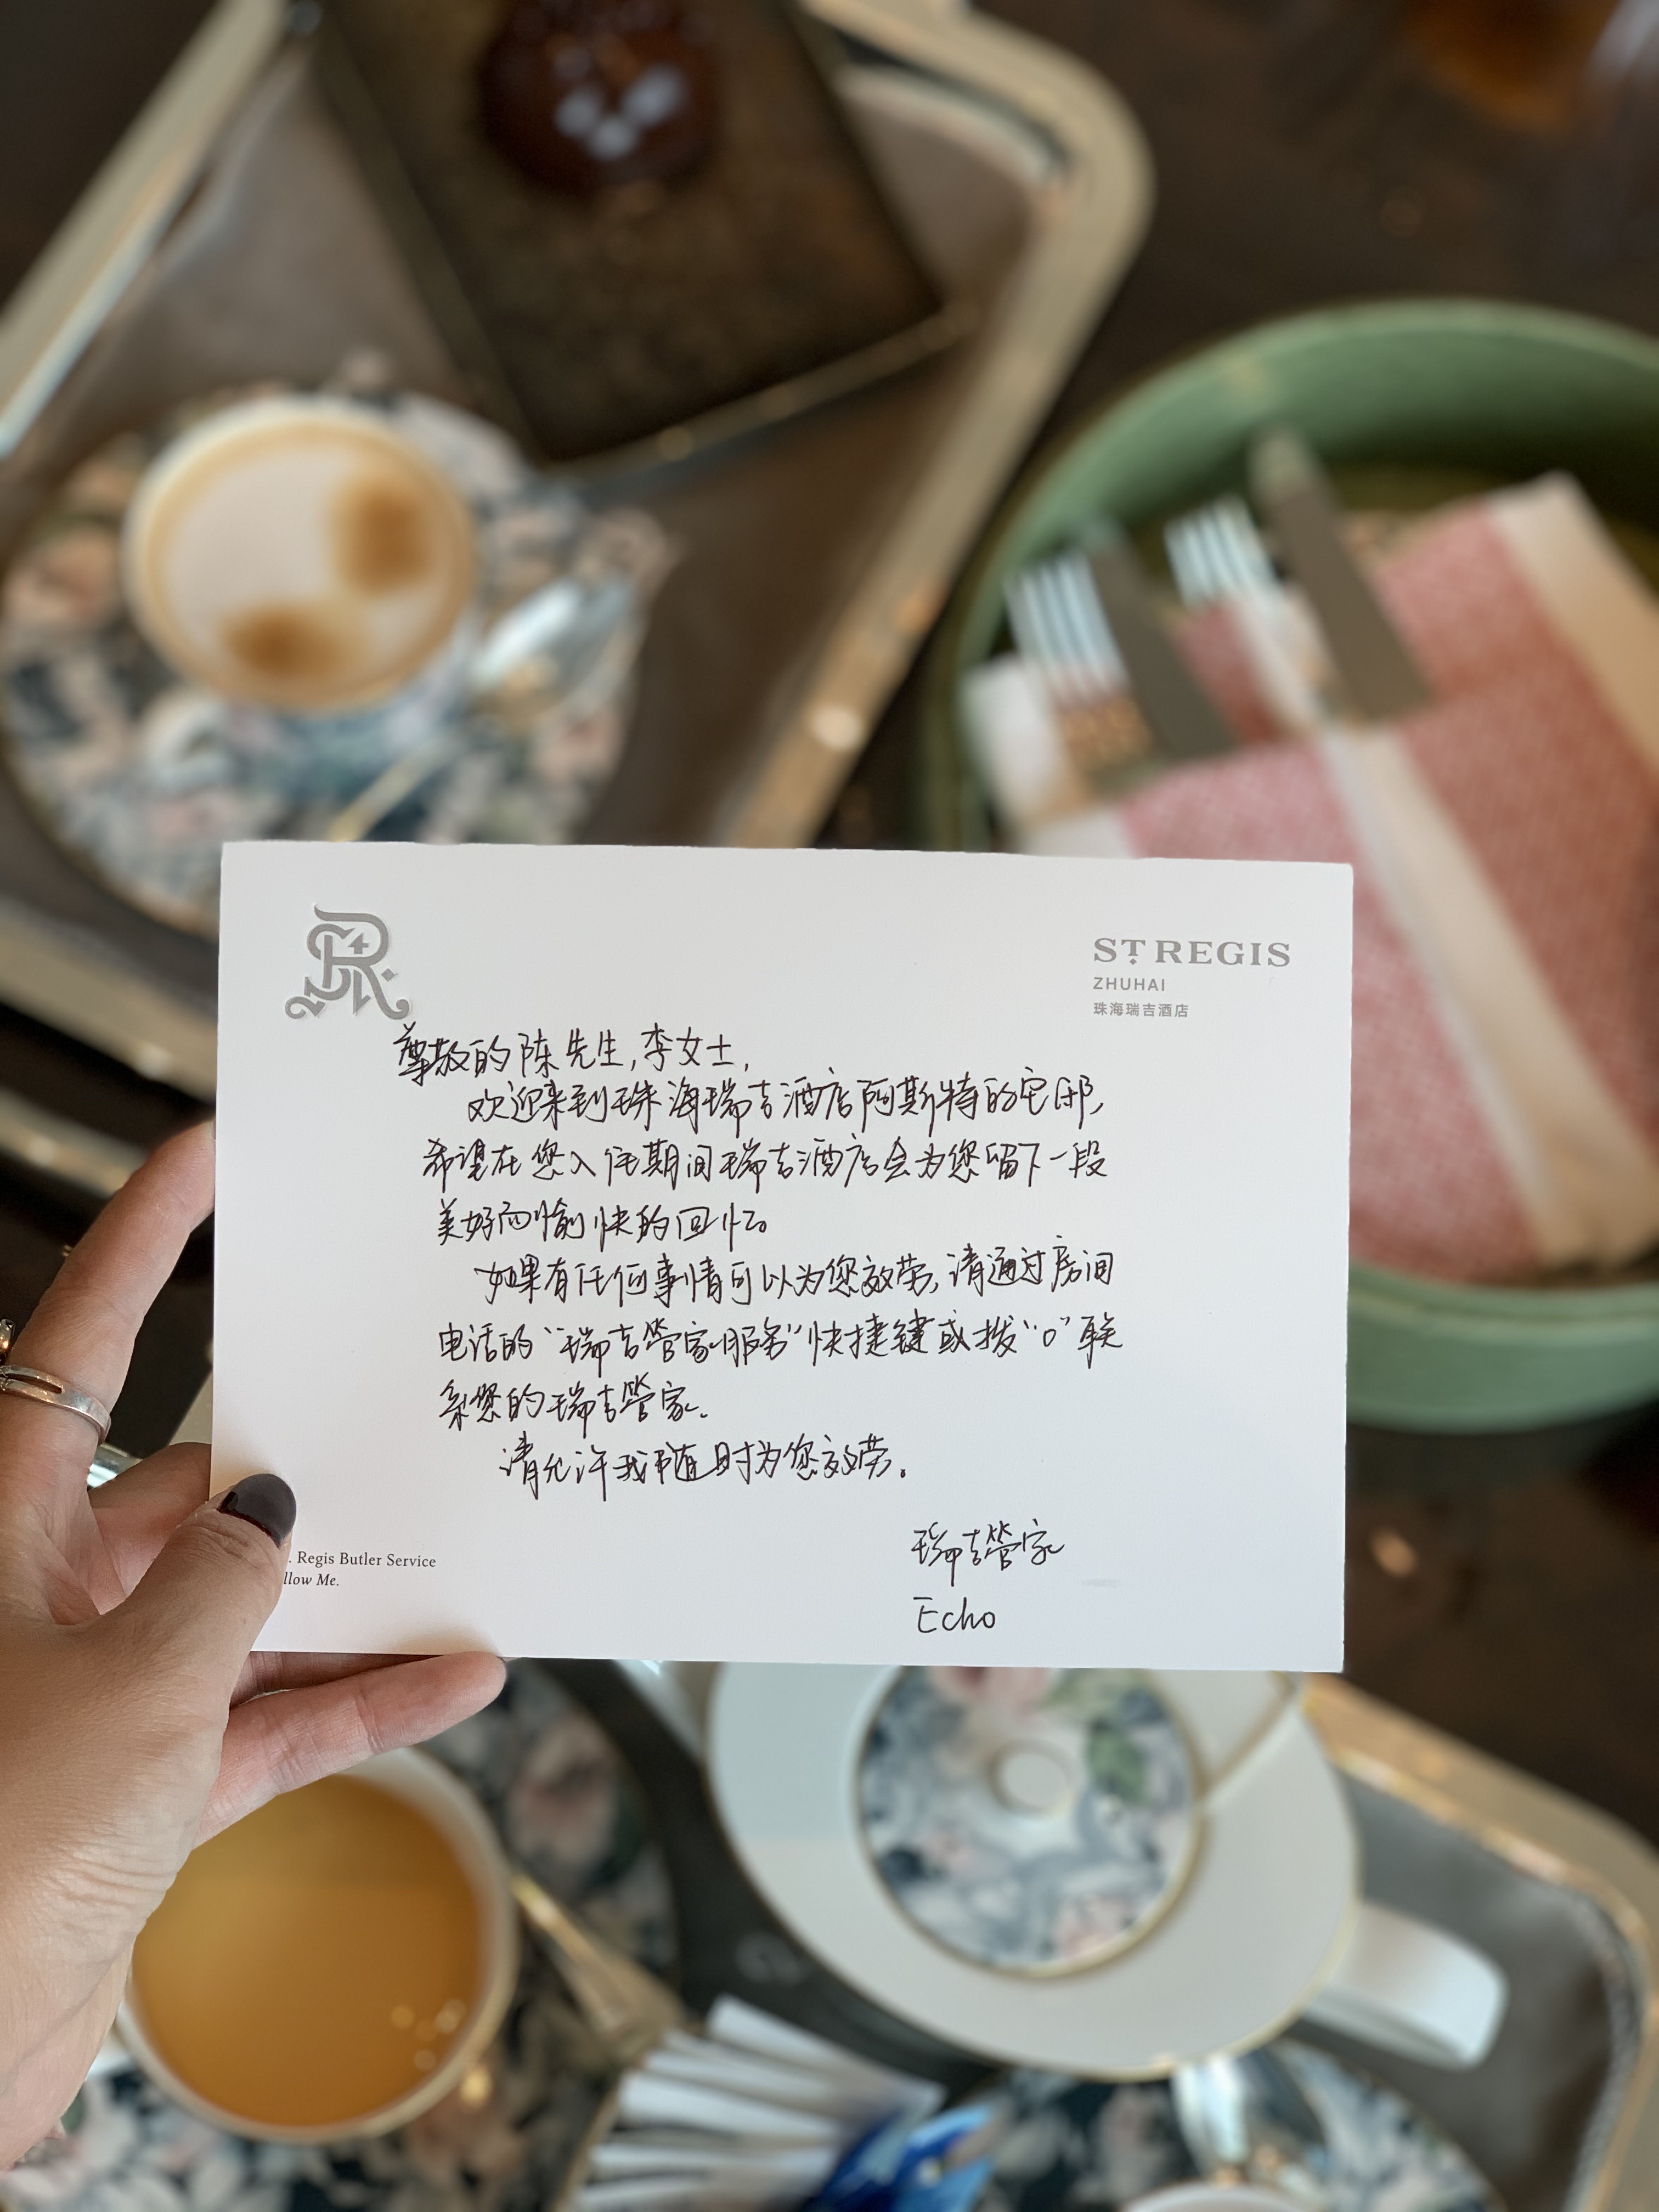 ST REGIS
ZHUHAI
珠海瑞吉酒店
尊敬的陈先生,李女士,
欢迎来到珠海瑞吉酒店阿斯特的宅邸,
希望在您入住期间瑞吉酒店会为您留下一段
美好而愉快的回忆。
如果有任何事情可以为您效劳,请通过房间
电话的“瑞吉管家服务”快捷键或拨“0”联
系您的瑞吉管家.
请允许我随时为您效劳。
瑞吉管家
Echo
. Regis Butler Service
llow Me.